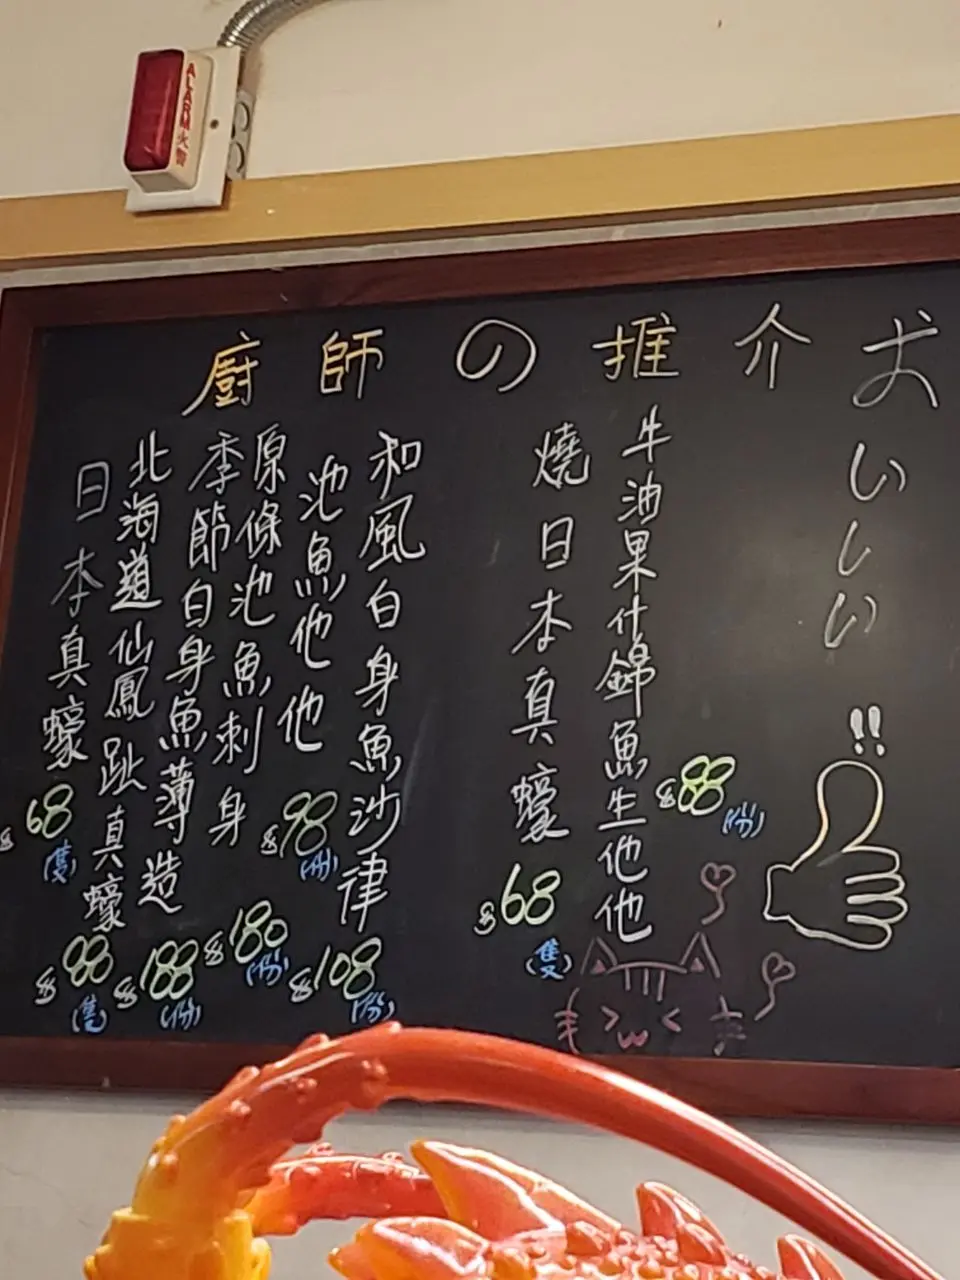 ALARM 火警
廚師の推介
おいしい!!
牛油果什錦魚生他他
$88(份)
燒日本真蠔
$68(隻)
和風白身魚沙律
$108(份)
池魚他他
$98(份)
原條池魚刺身
$180(份)
季節白身魚薄造
$188(份)
北海道仙鳳趾真蠔
$88(隻)
日本真蠔
$68(隻)